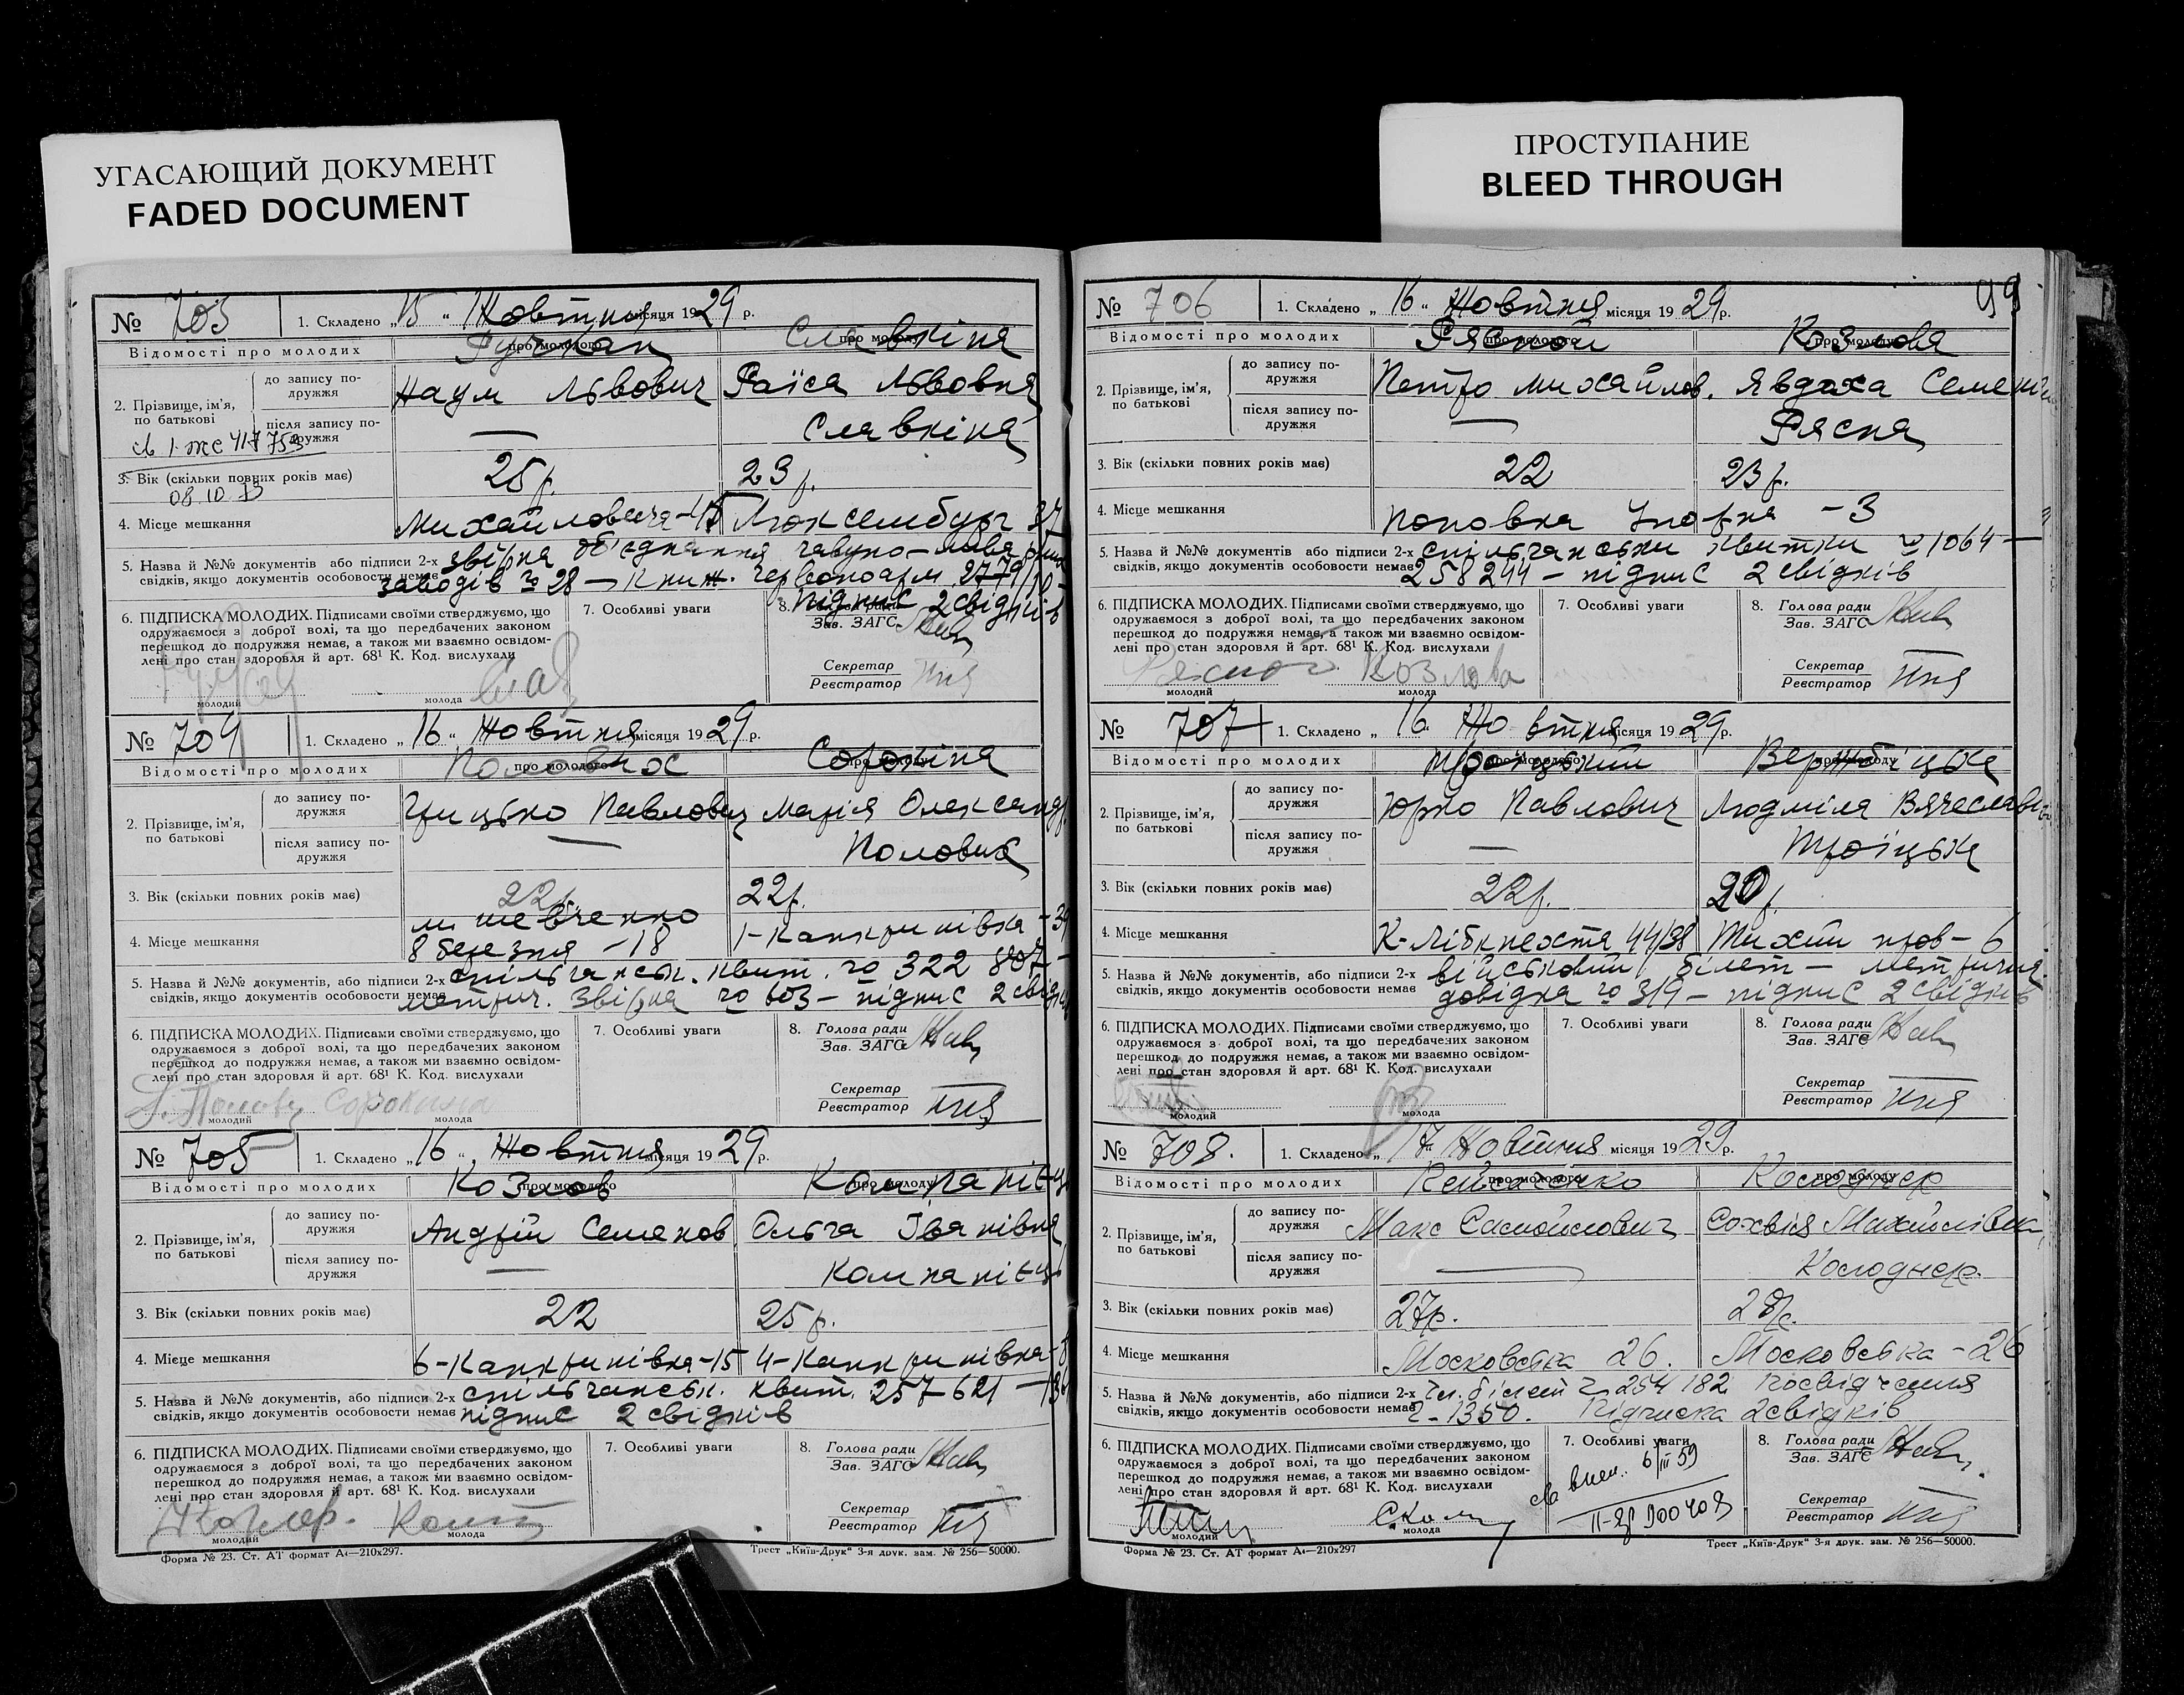 УГАСАЮЩИЙ ДОКУМЕНТ
FADED DOCUMENT
ПРОСТУПАНИЕ
BLEED THROUGH
№ 703 1. Складено „15“ Жовтня місяця 1929 р.
Відомості про молодих про молодого про молоду Славкіна
2. Прізвище, ім’я, по батькові
до запису подружжя Наум Львович Раїса Львовна
після запису подружжя — Славкіна
3. Вік (скільки повних років має) 25р. 23р.
08.10.73
4. Місце мешкання Люксембург 37
5. Назва й №№ документів або підписи 2-х звірка об'єднання чавуно-лива
свідків, якщо документів особовости немає заводів № 28 — Книж. червоноарм 2779/10
підпис 2 свідків
6. ПІДПИСКА МОЛОДИХ. Підписами своїми стверджуємо, що
одружаємося з доброї волі, та що передбачених законом
перешкод до подружжя немає, а також ми взаємно освідом-
лені про стан здоровля й арт. 68¹ К. Код. вислухали
молодий молода
7. Особливі уваги
8. Голова ради
Зав. ЗАГС
Секретар
Реєстратор
№ 704 1. Складено „16“ Жовтня місяця 1929 р.
Відомості про молодих про молодого Половнос про молоду Сорокіна
2. Прізвище, ім’я, по батькові
до запису подружжя Грицько Павлович Марія Олександр.
після запису подружжя —
3. Вік (скільки повних років має) 22р. 22р.
4. Місце мешкання м. Шевченко
8 березня -18 1-Канкринівка -39
5. Назва й №№ документів, або підписи 2-х спільчанськ. квит. № 322 807 —
свідків, якщо документів особовости немає метрич. звірка № 603 — підпис 2 свідків
6. ПІДПИСКА МОЛОДИХ. Підписами своїми стверджуємо, що
одружаємося з доброї волі, та що передбачених законом
перешкод до подружжя немає, а також ми взаємно освідом-
лені про стан здоровля й арт. 68¹ К. Код. вислухали
Сорокина
молодий молода
7. Особливі уваги
8. Голова ради
Зав. ЗАГС
Секретар
Реєстратор
№ 705 1. Складено „16“ Жовтня місяця 1929 р.
Відомості про молодих про молодого Козлов про молоду Компанієць
2. Прізвище, ім’я, по батькові
до запису подружжя Андрій Семенов. Ольга Іванівна
після запису подружжя — Компанієць
3. Вік (скільки повних років має) 22 25р.
4. Місце мешкання 6-Канкринівка-15 4-Канкринівка-8
5. Назва й №№ документів, або підписи 2-х спільчанськ. квит. 257621 —
свідків, якщо документів особовости немає підпис 2 свідків
6. ПІДПИСКА МОЛОДИХ. Підписами своїми стверджуємо, що
одружаємося з доброї волі, та що передбачених законом
перешкод до подружжя немає, а також ми взаємно освідом-
лені про стан здоровля й арт. 68¹ К. Код. вислухали
молодий молода
7. Особливі уваги
8. Голова ради
Зав. ЗАГС
Секретар
Реєстратор
Форма № 23. Ст. АТ формат А4—210х297. Трест „Київ-Друк“ 3-я друк. зам. № 256—50000.
99
№ 706 1. Складено „16“ Жовтня місяця 1929 р.
Відомості про молодих про молодого Рясной про молоду Козлова
2. Прізвище, ім’я, по батькові
до запису подружжя Петро Михайлов. Явдоха
після запису подружжя — Рясна
3. Вік (скільки повних років має) 22 23р.
4. Місце мешкання Поповка -3
5. Назва й №№ документів або підписи 2-х спільчанськи квитки № 1064 —
свідків, якщо документів особовости немає 258244 — підпис 2 свідків
6. ПІДПИСКА МОЛОДИХ. Підписами своїми стверджуємо, що
одружаємося з доброї волі, та що передбачених законом
перешкод до подружжя немає, а також ми взаємно освідом-
лені про стан здоровля й арт. 68¹ К. Код. вислухали
Козлова
молодий молода
7. Особливі уваги
8. Голова ради
Зав. ЗАГС
Секретар
Реєстратор
№ 707 1. Складено „16“ Жовтня місяця 1929 р.
Відомості про молодих про молодого Троїцький про молоду Вержбіцька
2. Прізвище, ім’я, по батькові
до запису подружжя Юрко Павлович Людміла
після запису подружжя — Троїцька
3. Вік (скільки повних років має) 22р. 20р.
4. Місце мешкання К-Лібкнехта 44/38 Тихий пров - 6
5. Назва й №№ документів, або підписи 2-х військовий білет — метрична
свідків, якщо документів особовости немає довідка № 319 — підпис 2 свідків
6. ПІДПИСКА МОЛОДИХ. Підписами своїми стверджуємо, що
одружаємося з доброї волі, та що передбачених законом
перешкод до подружжя немає, а також ми взаємно освідом-
лені про стан здоровля й арт. 68¹ К. Код. вислухали
молодий молода
7. Особливі уваги
8. Голова ради
Зав. ЗАГС
Секретар
Реєстратор
№ 708. 1. Складено „17“ Жовтня місяця 1929 р.
Відомості про молодих про молодого про молоду Колоднер
2. Прізвище, ім’я, по батькові
до запису подружжя Макс Самойлович Сохвія Михайлівна
після запису подружжя — Колоднер.
3. Вік (скільки повних років має) 27р. 28р.
4. Місце мешкання Московська 26. Московська - 26
5. Назва й №№ документів, або підписи 2-х Чл. білет № 254182 Посвідчення
свідків, якщо документів особовости немає № 1350. Підписка 2 свідків
6. ПІДПИСКА МОЛОДИХ. Підписами своїми стверджуємо, що
одружаємося з доброї волі, та що передбачених законом
перешкод до подружжя немає, а також ми взаємно освідом-
лені про стан здоровля й арт. 68¹ К. Код. вислухали
молодий молода
7. Особливі уваги
6/III 59
8. Голова ради
Зав. ЗАГС
Секретар
Реєстратор
Форма № 23. Ст. АТ формат А4—210х297 Трест „Київ-Друк“ 3-я друк. зам. № 256—50000.